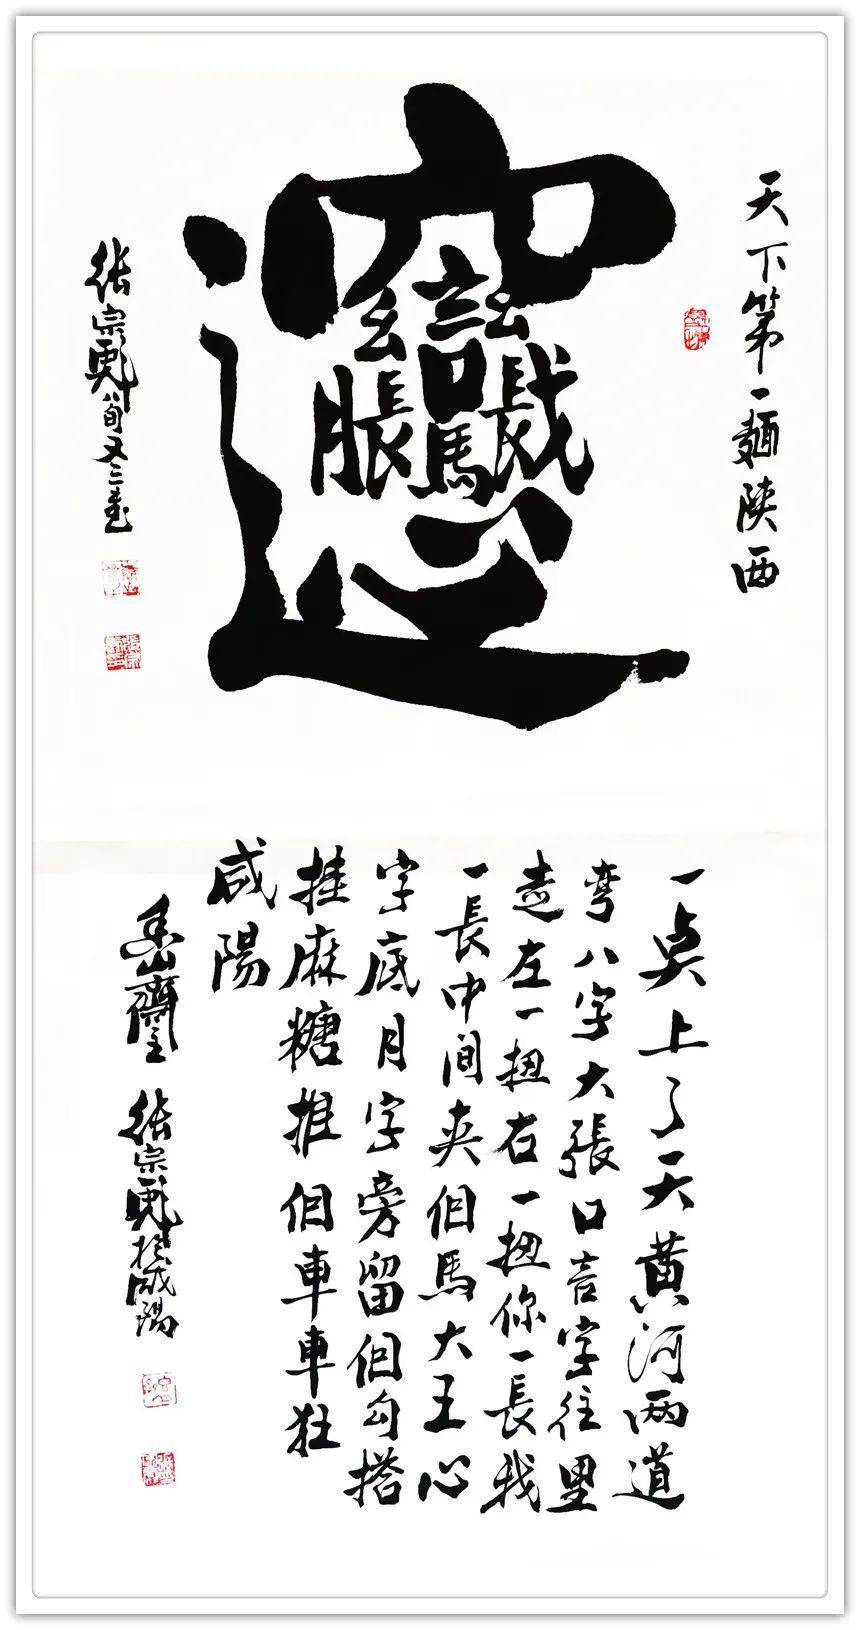 天下第一麵陝西
𰻝
張宗彪八旬又三書
一奌上了天黄河两道
弯八字大張口言字往里
走左一扭右一扭你一長我
一長中间夾個馬大王心
字底月字旁留個勾搭
挂麻糖推個車車狂
咸陽
齋主 張宗彪於咸陽